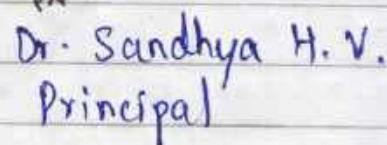 Dr. Sandhya H. V.
Principal